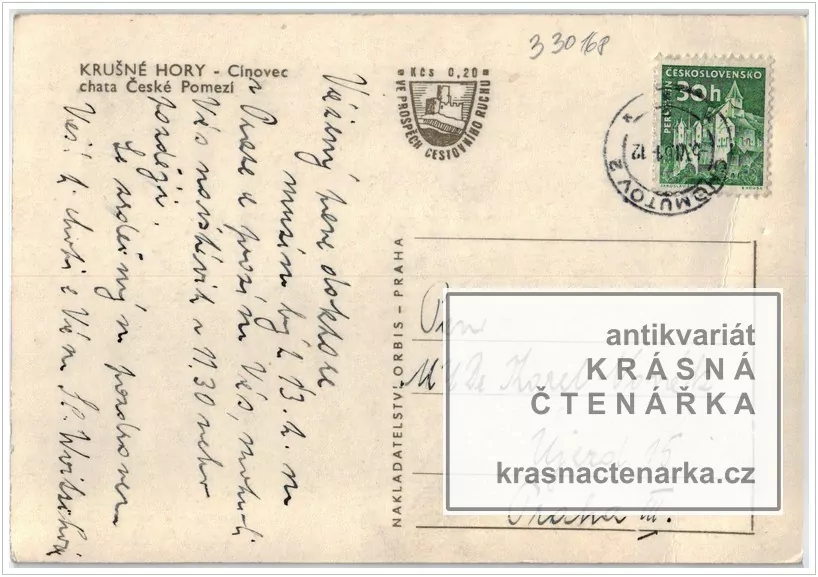 330168
KRUŠNÉ HORY - Cínovec
chata České Pomezí
Kčs 0,20
VE PROSPĚCH CESTOVNÍHO RUCHU
ČESKOSLOVENSKO
30h
PERNŠTEJN
CHOMUTOV 2
Vážený pane doktore
musím být 13. t. m
v Praze a prosím Vás,
Vás navštívit v 11.30 nebo
později.
Se srdečným pozdravem
NAKLADATELSTVÍ ORBIS - PRAHA
Pan
MUDr Karel
Újezd 15
Praha III.
antikvariát
KRÁSNÁ
ČTENÁŘKA
krasnactenarka.cz